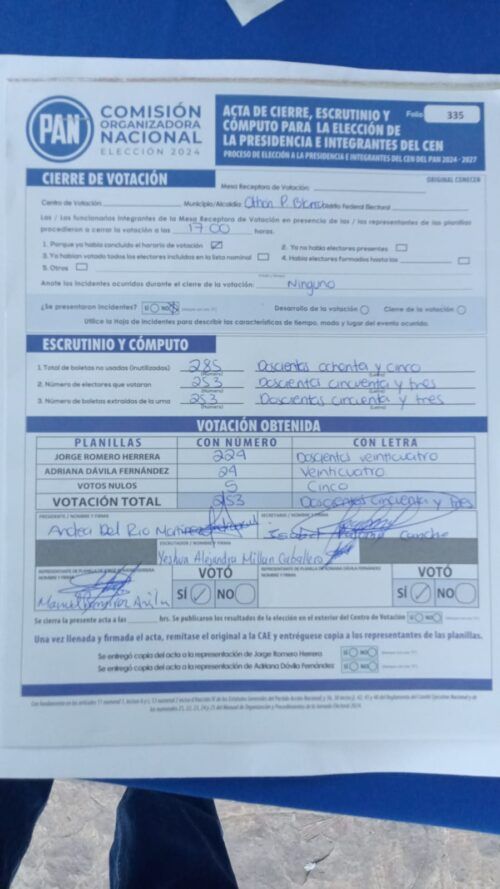 PAN
COMISIÓN
ORGANIZADORA
NACIONAL
ELECCIÓN 2024
ACTA DE CIERRE, ESCRUTINIO Y
CÓMPUTO PARA LA ELECCIÓN DE
LA PRESIDENCIA E INTEGRANTES DEL CEN
PROCESO DE ELECCIÓN A LA PRESIDENCIA E INTEGRANTES DEL CEN DEL PAN 2024 - 2027
Folio 335
CIERRE DE VOTACIÓN
Mesa Receptora de Votación:
ORIGINAL CONECEN
Centro de Votación Municipio/Alcaldía Othón P. Blanco Distrito Federal Electoral
Las / Los funcionarios integrantes de la Mesa Receptora de Votación en presencia de las / los representantes de las planillas
procedieron a cerrar la votación a las 17:00 horas.
1. Porque ya había concluido el horario de votación
2. Ya no había electores presentes
3. Ya habían votado todos los electores incluidos en la lista nominal
4. Había electores formados hasta las
5. Otros
Anote los incidentes ocurridos durante el cierre de la votación: Ninguno
¿Se presentaron incidentes? SÍ NO Desarrollo de la votación Cierre de la votación
Utilice la Hoja de Incidentes para describir las características de tiempo, modo y lugar del evento ocurrido.
ESCRUTINIO Y CÓMPUTO
1. Total de boletas no usadas (inutilizadas) 285 Doscientos ochenta y cinco
(Número) (Letra)
2. Número de electores que votaron 253 Doscientos cincuenta y tres
(Número) (Letra)
3. Número de boletas extraídas de la urna 253 Doscientos cincuenta y tres
(Número) (Letra)
VOTACIÓN OBTENIDA
PLANILLAS CON NÚMERO CON LETRA
JORGE ROMERO HERRERA 224 Doscientos veinticuatro
ADRIANA DÁVILA FERNÁNDEZ 24 Veinticuatro
VOTOS NULOS 5 Cinco
VOTACIÓN TOTAL 253 Doscientos cincuenta y tres
PRESIDENTE / NOMBRE Y FIRMA SECRETARIO / NOMBRE Y FIRMA
Andrea Del Rio
ESCRUTADOR / NOMBRE Y FIRMA
Yeshua Alejandra Millan Caballero
NOMBRE Y FIRMA
VOTÓ
SÍ NO
REPRESENTANTE DE PLANILLA DE ADRIANA DÁVILA FERNÁNDEZ
NOMBRE Y FIRMA
VOTÓ
SÍ NO
Manuel
Se cierra la presente acta a las hrs. Se publicaron los resultados de la elección en el exterior del Centro de Votación SÍ NO
Una vez llenada y firmada el acta, remítase el original a la CAE y entréguese copia a los representantes de las planillas.
Se entregó copia del acta a la representación de Jorge Romero Herrero SÍ NO
Se entregó copia del acta a la representación de Adriana Dávila Fernández SÍ NO